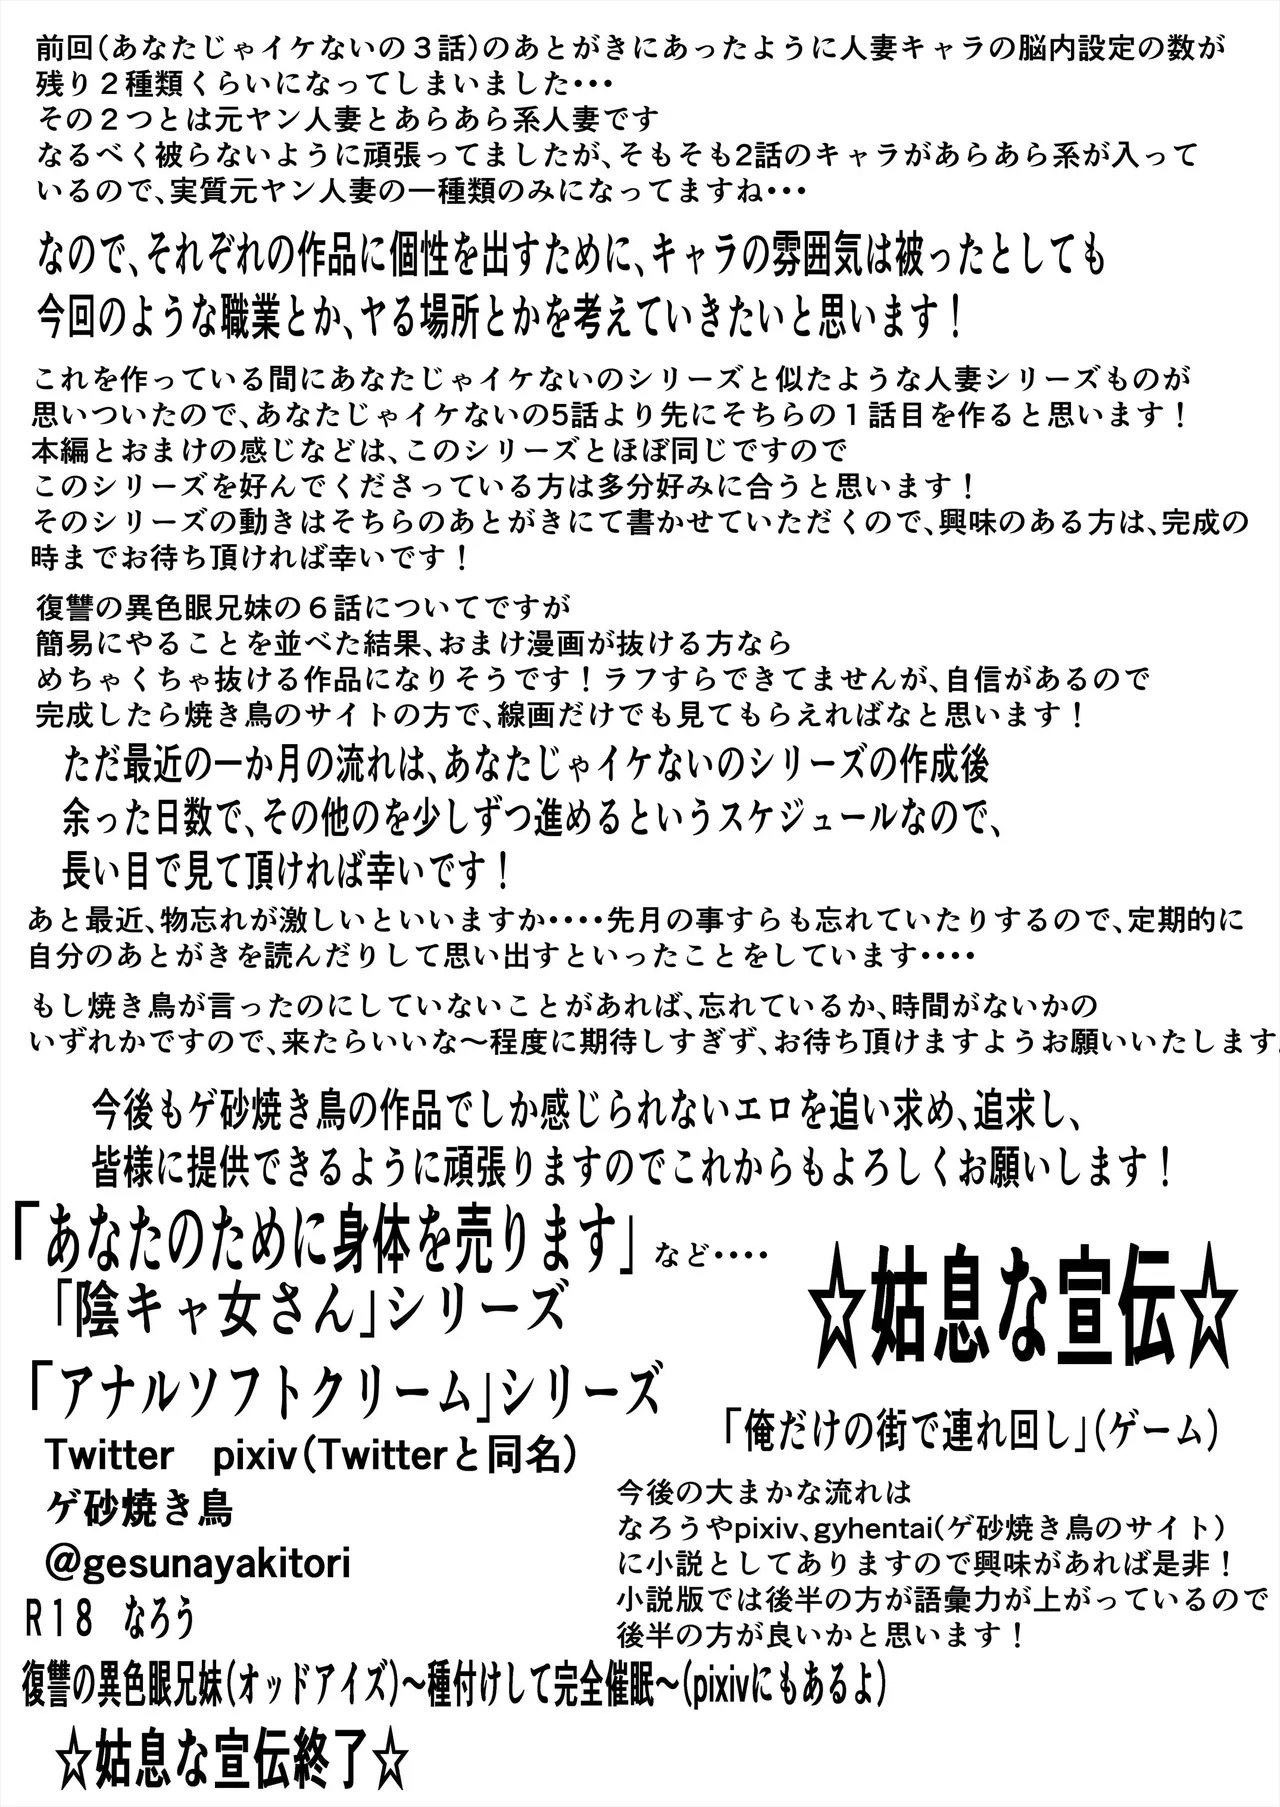 前回(あなたじゃイケないの３話)のあとがきにあったように人妻キャラの脳内設定の数が
残り２種類くらいになってしまいました・・・
その２つとは元ヤン人妻とあらあら系人妻です
なるべく被らないように頑張ってましたが、そもそも2話のキャラがあらあら系が入って
いるので、実質元ヤン人妻の一種類のみになってますね・・・
なので、それぞれの作品に個性を出すために、キャラの雰囲気は被ったとしても
今回のような職業とか、ヤる場所とかを考えていきたいと思います！
これを作っている間にあなたじゃイケないのシリーズと似たような人妻シリーズものが
思いついたので、あなたじゃイケないの5話より先にそちらの１話目を作ると思います！
本編とおまけの感じなどは、このシリーズとほぼ同じですので
このシリーズを好んでくださっている方は多分好みに合うと思います！
そのシリーズの動きはそちらのあとがきにて書かせていただくので、興味のある方は、完成の
時までお待ち頂ければ幸いです！
復讐の異色眼兄妹の６話についてですが
簡易にやることを並べた結果、おまけ漫画が抜ける方なら
めちゃくちゃ抜ける作品になりそうです！ラフすらできてませんが、自信があるので
完成したら焼き鳥のサイトの方で、線画だけでも見てもらえればなと思います！
ただ最近の一か月の流れは、あなたじゃイケないのシリーズの作成後
余った日数で、その他のを少しずつ進めるというスケジュールなので、
長い目で見て頂ければ幸いです！
あと最近、物忘れが激しいといいますか・・・・先月の事すらも忘れていたりするので、定期的に
自分のあとがきを読んだりして思い出すといったことをしています・・・・
もし焼き鳥が言ったのにしていないことがあれば、忘れているか、時間がないかの
いずれかですので、来たらいいな～程度に期待しすぎず、お待ち頂けますようお願いいたします。
今後もゲ砂焼き鳥の作品でしか感じられないエロを追い求め、追求し、
皆様に提供できるように頑張りますのでこれからもよろしくお願いします！
「あなたのために身体を売ります」など・・・・
「陰キャ女さん」シリーズ
☆姑息な宣伝☆
「アナルソフトクリーム」シリーズ
「俺だけの街で連れ回し」(ゲーム)
Twitter　pixiv(Twitterと同名)
ゲ砂焼き鳥
@gesunayakitori
R１８　なろう
今後の大まかな流れは
なろうやpixiv、gyhentai(ゲ砂焼き鳥のサイト)
に小説としてありますので興味があれば是非！
小説版では後半の方が語彙力が上がっているので
後半の方が良いかと思います！
復讐の異色眼兄妹(オッドアイズ)～種付けして完全催眠～(pixivにもあるよ)
☆姑息な宣伝終了☆